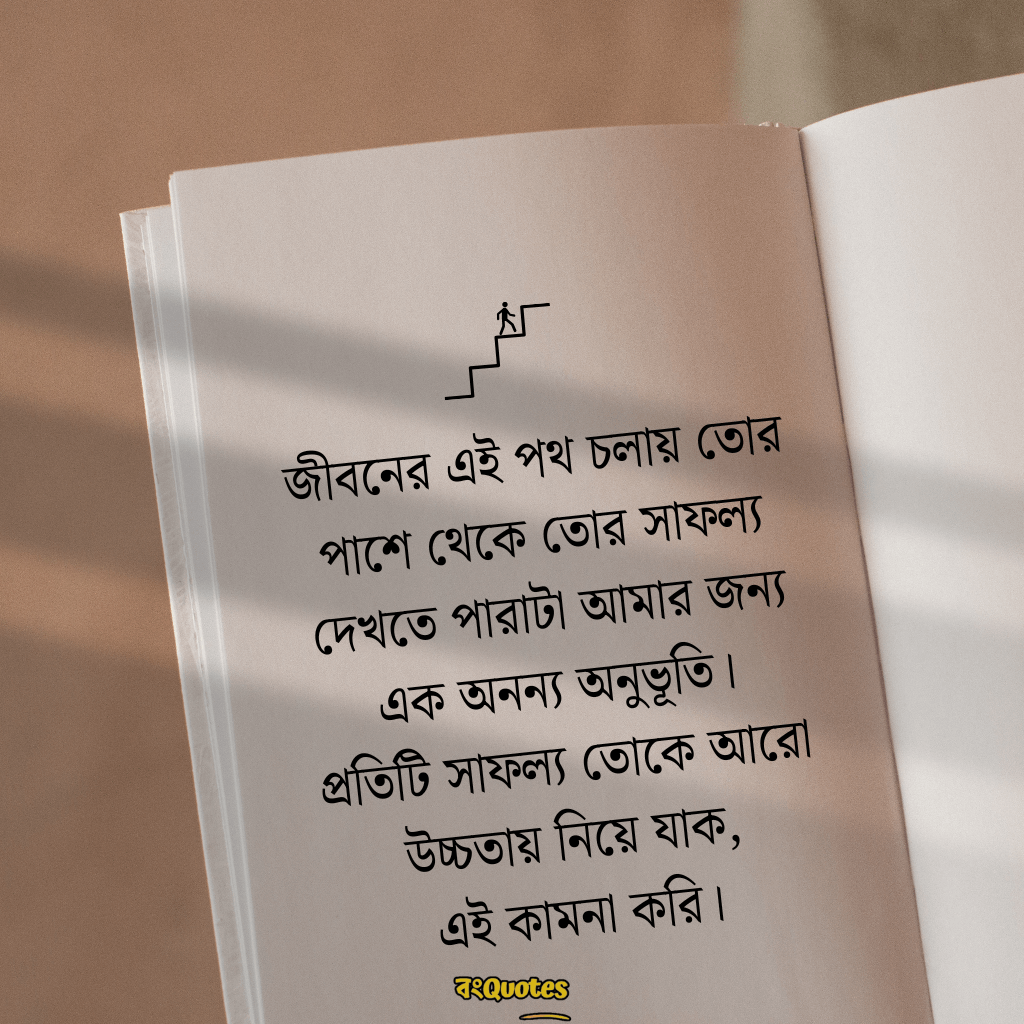 জীবনের এই পথ চলায় তোর
পাশে থেকে তোর সাফল্য
দেখতে পারাটা আমার জন্য
এক অনন্য অনুভূতি।
প্রতিটি সাফল্য তোকে আরো
উচ্চতায় নিয়ে যাক,
এই কামনা করি।
বংQuotes